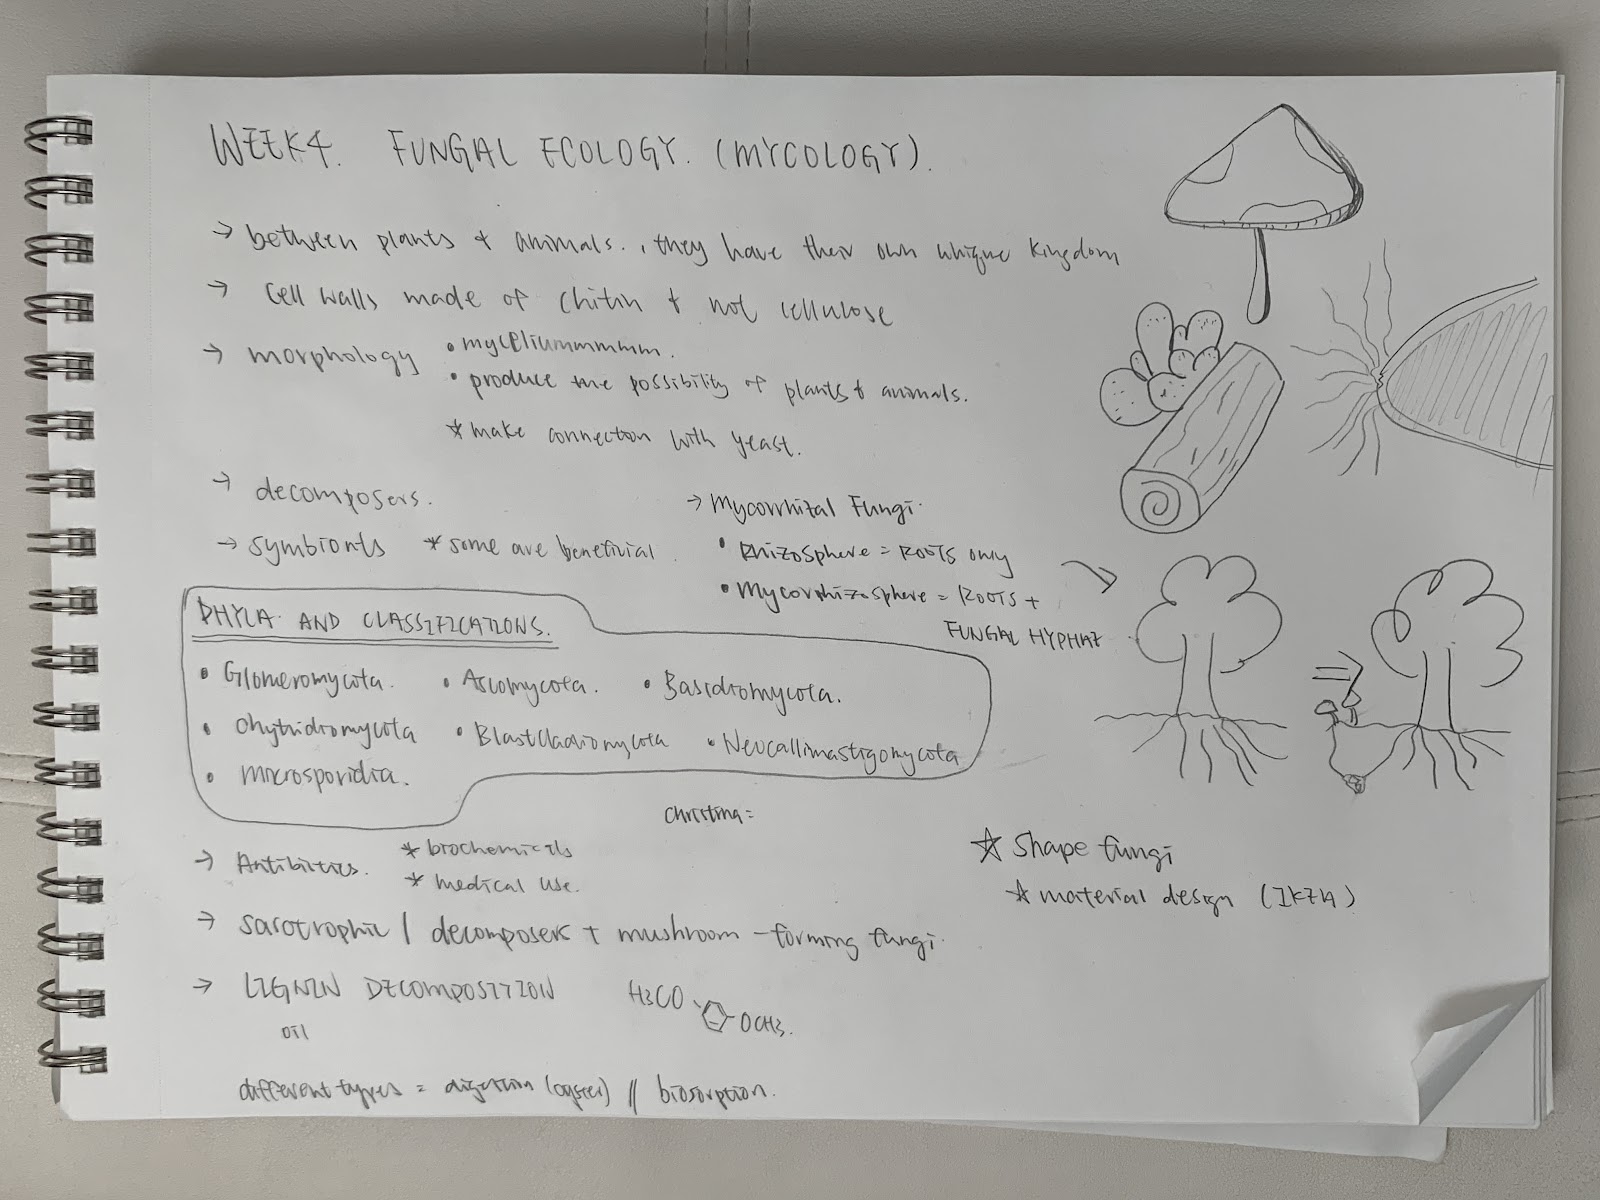 WEEK4. FUNGAL ECOLOGY. (MYCOLOGY).
→ between plants & animals., they have their own unique kingdom
→ cell walls made of chitin & not cellulose
→ morphology • myceliummmmm.
• produce the possibility of plants & animals.
* make connection with yeast.
→ decomposers.
→ symbionts * some are beneficial.
→ Mycorrhizal Fungi.
• Rhizosphere = ROOTS only
• Mycorrhizosphere = ROOTS +
FUNGAL HYPHAE
PHYLA AND CLASSIFICATIONS.
• Glomeromycota. • Ascomycota. • Basidiomycota.
• Chytridiomycota • Blastcladiomycota • Neocallimastigomycota
• Microsporidia.
Christina =
→ Antibiotics. * biochemicals
* medical use.
☆ shape fungi
☆ material design (IKEA)
→ sarotrophic / decomposers + mushroom-forming fungi.
→ LIGNIN DECOMPOSITION H3CO OCH3.
oil
different types = digestion (oyster) // biosorption.